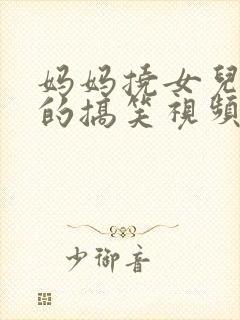 妈妈撓女兒
的搞笑視頻
少御音